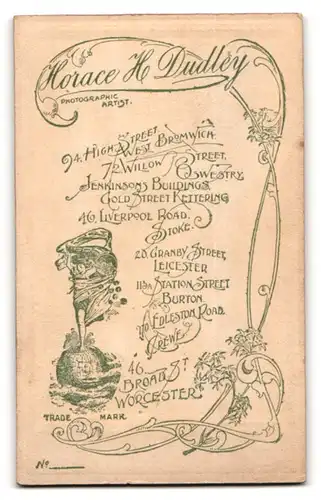 Horace H Dudley
PHOTOGRAPHIC
ARTIST.
94. HIGH STREET
WEST BROMWICH.
72 WILLOW STREET,
OSWESTRY.
JENKINSONS BUILDINGS
GOLD STREET KETTERING
46. LIVERPOOL ROAD.
STOKE.
20. GRANBY STREET,
LEICESTER
STATION STREET
BURTON.
EDLESTON ROAD.
CREWE.
46
BROAD ST
WORCESTER
TRADE MARK.
No